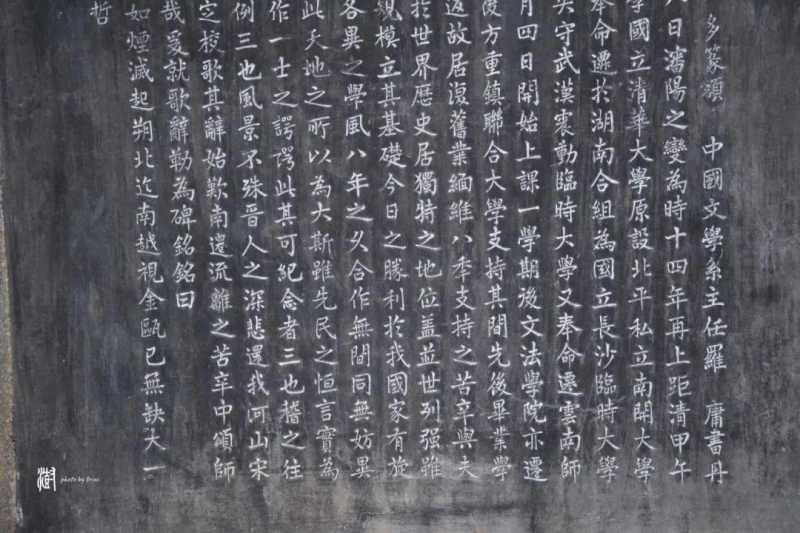 多篆額 中國文學系主任羅 庸書丹
八日瀋陽之變為時十四年再上距清甲午
學國立清華大學原設北平私立南開大學
奉命遷於湖南合組為國立長沙臨時大學
失守武漢震動臨時大學又奉命遷雲南師
月四日開始上課一學期後文法學院亦遷
後方重鎮聯合大學支持其間先後畢業學
返故居復舊業緬維八年支持之苦辛與夫
於世界歷史居獨特之地位蓋並世列强雖
規模立其基礎今日之勝利於我國家有旋
各異之學風八年之久合作無間同無妨異
此天地之所以為大斯雖先民之恒言實為
作一士之諤諤此其可紀念者三也稽之往
例三也風景不殊晉人之深悲還我河山宋
定校歌其辭始歎南遷流離之苦辛中頌師
哉爰就歌辭勒為碑銘銘曰
如煙滅起朔北迄南越視金甌已無缺大一
哲
photo by